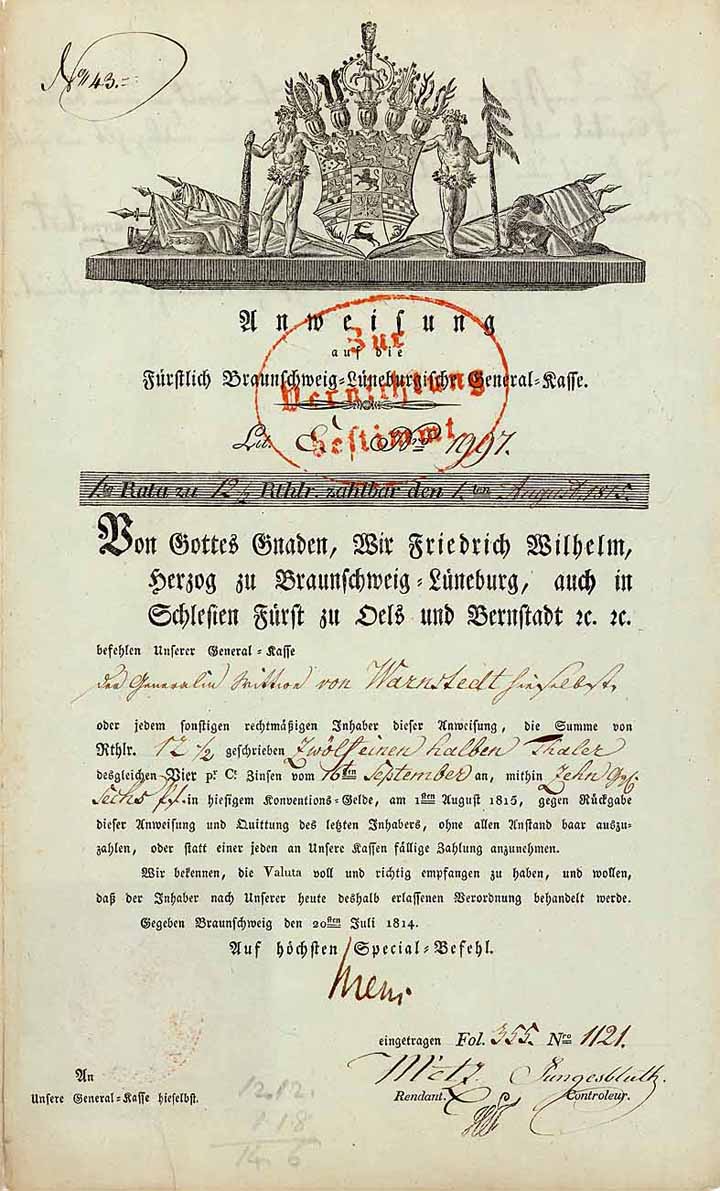 No 43.
Anweisung
auf die
Fürstlich Braunschweig-Lüneburgische General-Kasse.
Zur
Vernichtung
bestimmt
Lit. Nro 1997.
1te Rata zu 12 1/2 Rthlr. zahlbar den 1ten August 1815.
Von Gottes Gnaden, Wir Friedrich Wilhelm,
Herzog zu Braunschweig-Lüneburg, auch in
Schlesien Fürst zu Oels und Bernstadt ꝛc. ꝛc.
befehlen Unserer General-Kasse
der Generalin Wittwe von Warnstedt hieselbst,
oder jedem sonstigen rechtmäßigen Inhaber dieser Anweisung, die Summe von
Rthlr. 12 1/2 geschrieben Zwölf einen halben Thaler
desgleichen Vier pr Ct Zinsen vom 16ten September an, mithin Zehn Ggr.
Sechs pf. in hiesigem Konventions-Gelde, am 1sten August 1815, gegen Rückgabe
dieser Anweisung und Quittung des letzten Inhabers, ohne allen Anstand baar auszu-
zahlen, oder statt einer jeden an Unsere Kassen fällige Zahlung anzunehmen.
Wir bekennen, die Valuta voll und richtig empfangen zu haben, und wollen,
daß der Inhaber nach Unserer heute deshalb erlassenen Verordnung behandelt werde.
Gegeben Braunschweig den 20sten Juli 1814.
Auf höchsten Special-Befehl.
eingetragen Fol. 355. Nro 1121.
Metz. Jungesbluth.
Rendant. Controleur.
An
Unsere General-Kasse hieselbst.
12.12.
1.18
14. 6